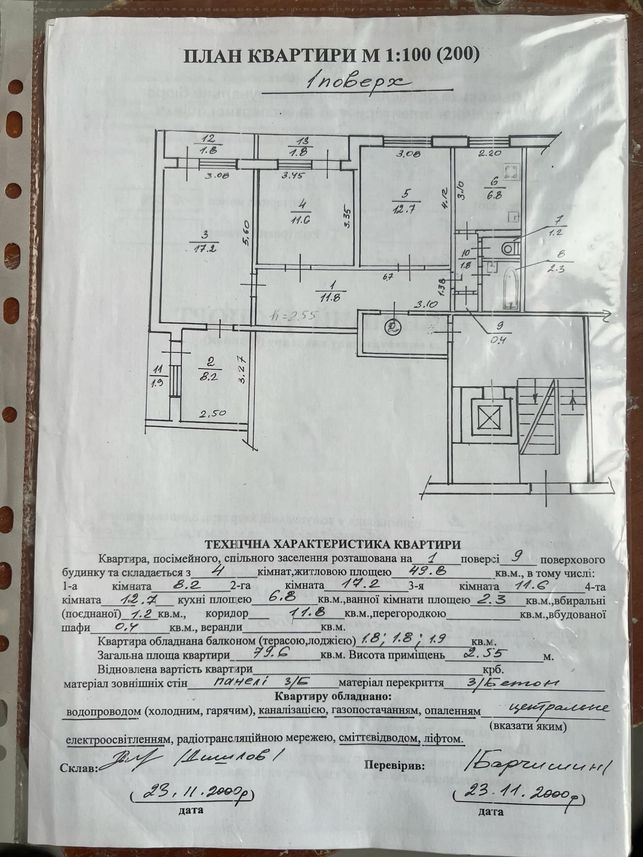 ПЛАН КВАРТИРИ М 1:100 (200)
1 поверх
12
1.8
13
1.8
3.08
3.45
3.08
2.20
3
17.2
5.60
4
11.6
3.35
5
12.7
4.12
3.10
6
6.8
7
1.2
8
2.3
10
1.8
1
11.8
6.7
1.38
h=2.55
3.10
9
0.4
11
1.9
2
8.2
3.27
2.50
ТЕХНІЧНА ХАРАКТЕРИСТИКА КВАРТИРИ
Квартира, посімейного, спільного заселення розташована на 1 поверсі 9 поверхового
будинку та складається з 4 кімнат,житловою площею 49.8 кв.м., в тому числі:
1-а кімната 8.2 2-га кімната 17.2 3-я кімната 11.6 4-та
кімната 12.7 кухні площею 6.8 кв.м.,ванної кімнати площею 2.3 кв.м.,вбиральні
(поєднаної) 1.2 кв.м., коридор 11.8 кв.м.,перегородкою кв.м.,вбудованої
шафи 0.4 кв.м., веранди кв.м.
Квартира обладнана балконом (терасою,лоджією) 1.8; 1.8; 1.9 кв.м.
Загальна площа квартири 79.6 кв.м. Висота приміщень 2.55 м.
Відновлена вартість квартири крб.
матеріал зовнішніх стін панелі з/б матеріал перекриття з/бетон
Квартиру обладнано:
водопроводом (холодним, гарячим), каналізацією, газопостачанням, опаленням центральне
(вказати яким)
електроосвітленням, радіотрансляційною мережею, сміттєвідводом, ліфтом.
Склав: Перевірив:
(23.11.2000р) (23.11.2000р)
дата дата